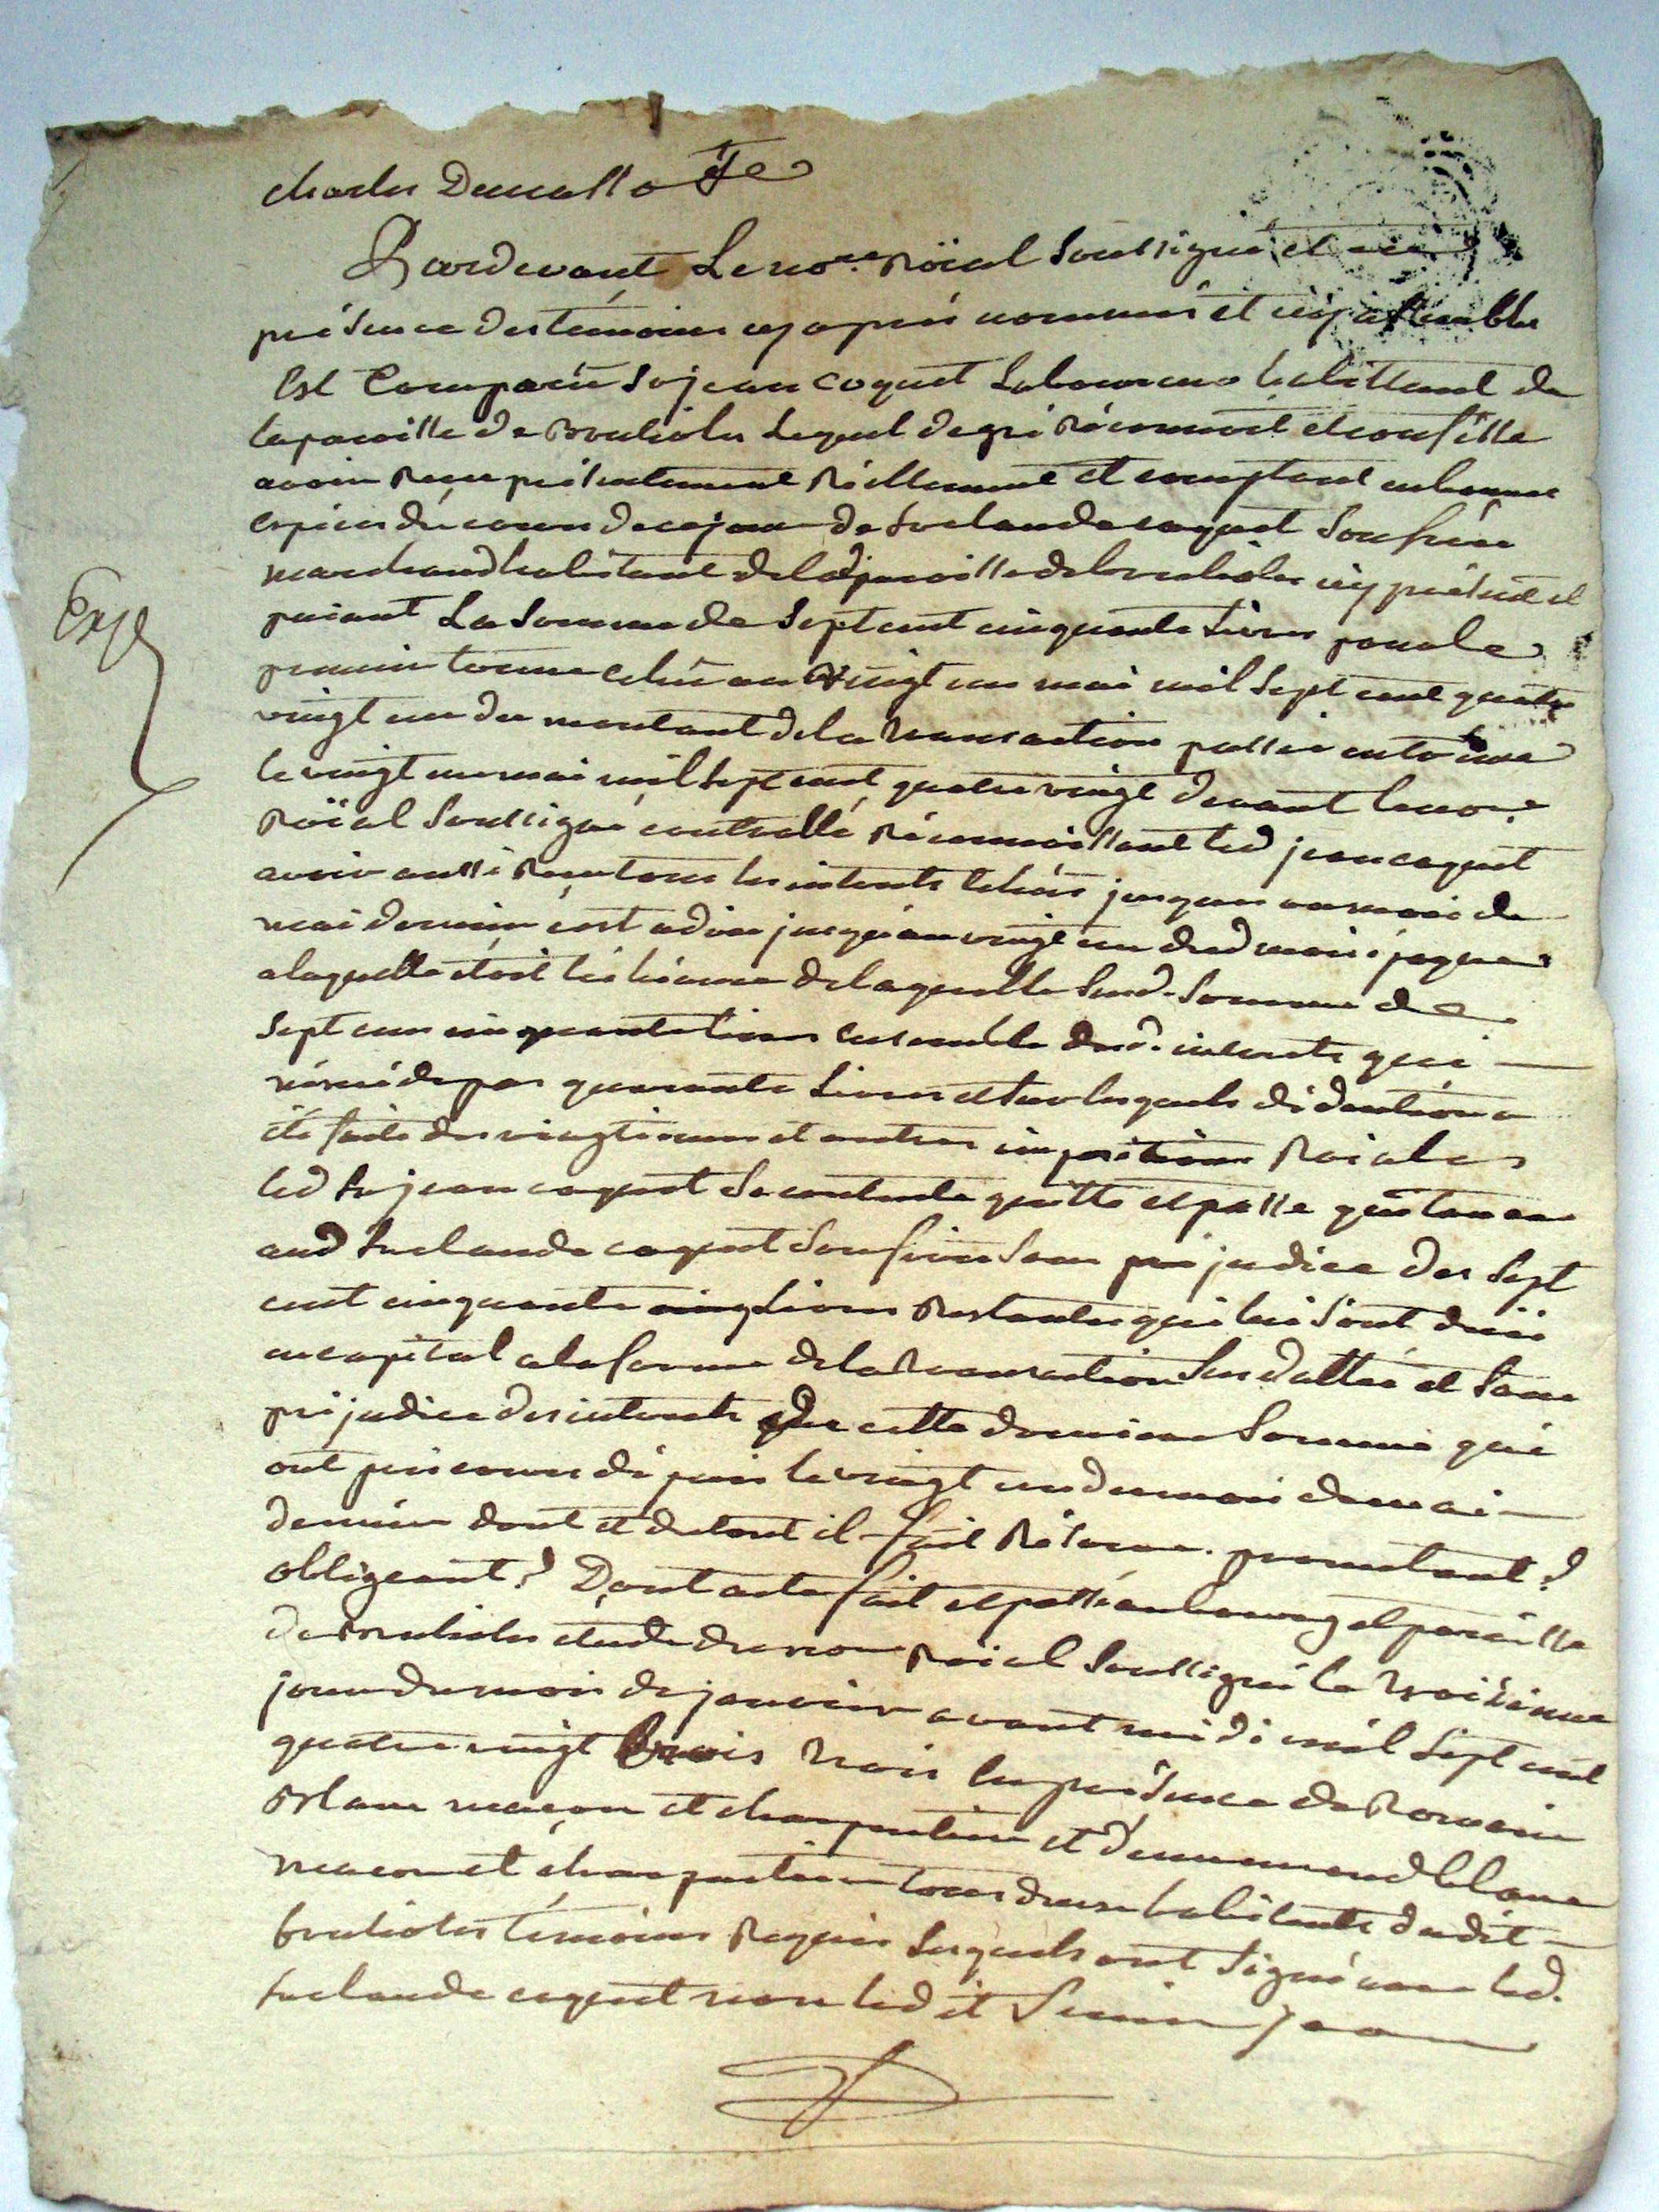 charles
Pardevant Le no.re Roïal Soussigné et en
présence des témoins cy aprés nommés et icy assemblés
Est Comparû Sr jean coquet Laboureur habittant de
la paroisse de Brulioles Lequel de gré Réconnoit et confesse
avoir Reçu présentement Réellement et comptant en bonnes
espéces du cours de ce jour de Sr claude coquet Son frère
marchand habitant de lad. paroisse de brulioles icy présent et
paiant La Somme de Sept cent cinquante Livres pour le
premier terme echû au vingt un mai mil Sept cent quatre
vingt un du montant de la transaction passée entr'eux
le vingt un mai mil Sept cent quatre vingt devant le no.re
Roïal Soussigné controllé Réconnoissant led jean coquet
avoir aussi Reçu tous les intérêts échûs jusques au mois de
mai dernier c'est a dire jusqu'au vingt un dud mois époque
a laquelle étoit l'échéance de laquelle Susd. Somme de
Sept cent cinquante Livres Ensemble desd. intérêts qui
quarante Livres et Sur lesquels déduction a
été faite des vingtiemes et autres impositions Roiales
led Sr jean coquet Se contente quitte et passe quittance
aud Sr claude coquet Son frère Sans préjudice des Sept
cent cinquante Livres Restantes qui lui Sont dües
en capital a la forme de la transaction Sus dattée et Sans
préjudice des intérêts de cette dernière Somme qui
ont pris cours dépuis le vingt un du mois de mai
dernier dont et du tout il fait Réserve. promettant &
obligeant & Dont acte fait et passé au bourg et paroisse
de Brulioles étude du no.re Roïal Soussigné le troisième
jour du mois de janvier avant midi mil Sept cent
quatre vingt trois En présence de Romain
Blanc maçon et charpentier et d'ennemond blanc
maçon et charpentier tous deux habitants dudit
brulioles témoins Requis Lesquels ont Signé avec led.
Sr claude coquet non led it Sieur jean
Exp